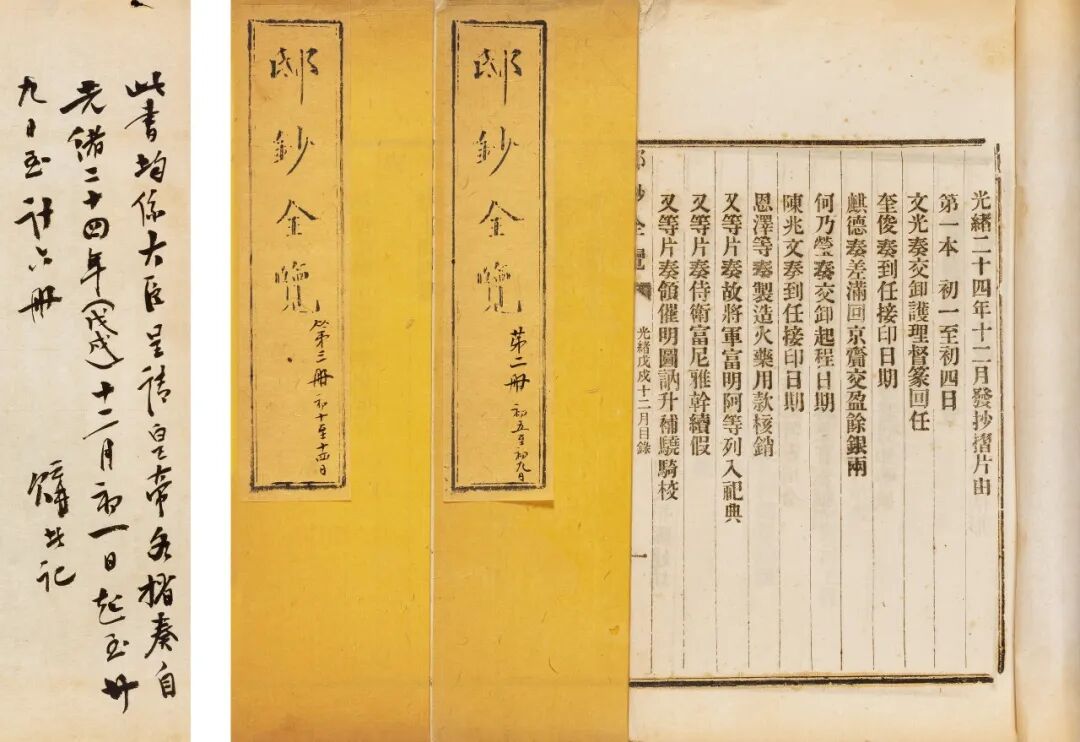 此書均係大臣呈請皇帝各摺奏自
光緒二十四年(戊戌)十二月初一日起至廿
九日至計六冊
記
邸鈔全覽
第三冊 初十至十四日
邸鈔全覽
第二冊 初五至初九日
光緒二十四年十二月發抄摺片由
第一本 初一至初四日
文光奏交卸護理督篆回任
奎俊奏到任接印日期
麒德奏差滿回京齎交盈餘銀兩
何乃瑩奏交卸起程日期
陳兆文奏到任接印日期
恩澤等奏製造火藥用款核銷
又等片奏故將軍富明阿等列入祀典
又等片奏侍衛富尼雅幹續假
又等片奏領催明圖訥升補驍騎校
邸鈔全覽
光緒戊戌十二月目錄
一